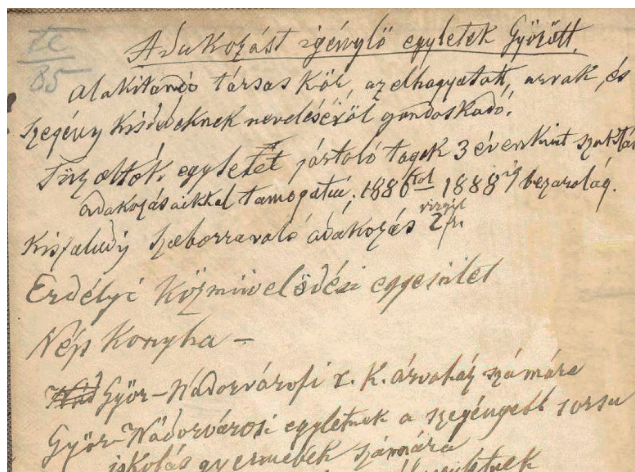 Adakozást igénylő egyletek Győrött
alakitandó társas Kör, az elhagyatott, arvák, és
szegény kisdedeknek neveléséről gondoskodó.
Tüzoltók egyletét pártoló tagok 3 évenkint szoktak
adakozásaikkal támogatni. 1886tol 1888ig bezarolag.
Kisfaludy szoborravaló adakozás 2 fr.
Erdélyi Közmüvelődési egyesület
Nép Konyha –
Győr–Nádorvárosi r. K. árvaház számára
Győr–Nádorvárosi egyletnek a szegényebb sorsu
iskolás gyermekek számára